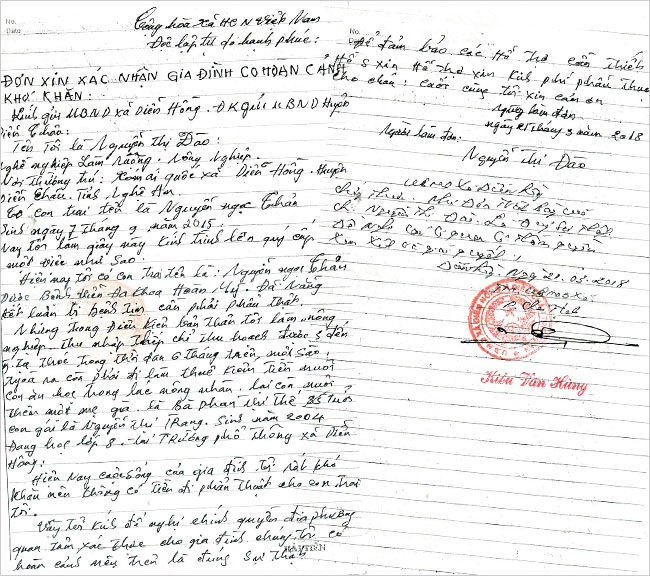 No.
Date
Cộng hòa xã HCN Việt Nam
Độc lập tự do hạnh phúc:
ĐƠN XIN XÁC NHẬN GIA ĐÌNH CÓ HOÀN CẢNH
KHÓ KHĂN:
Kính gửi UBND xã Diễn Hồng. ĐK gửi UBND Huyện
Diễn Châu:
Tên Tôi là Nguyễn Thị Đào:
Nghề nghiệp Làm Ruộng. Nông Nghiệp.
Nơi Thường trú: Xóm ái quốc xã Diễn Hồng. Huyện
Diễn Châu. Tỉnh Nghệ An.
Có con trai tên là Nguyễn ngọc Thản
Sinh ngày 7 tháng 9 năm 2015.
Nay tôi làm giấy này Kính trình lên quý cấp
một việc như Sau:
Hiện nay tôi có con Trai tên là: Nguyễn ngọc Thản
Được bệnh viện Đa Khoa Hoàn Mỹ Đà Nẵng
kết luận bị bệnh tim cần phải phẫu thật.
Nhưng trong Điều kiện bản Thân tôi làm nông
nghiệp. Thu nhập Thấp chỉ thu hoạch được 5 đến
tạ Thóc trong thời đan 6 tháng trên, một Sào,
ngoài ra còn phải đi làm thuê kiếm tiền nuôi
con ăn học trong lúc nông nhàn. lại còn nuôi
thêm một mẹ già là Bà phan thị thế 85 tuổi
con gái là Nguyễn Thị TRang. Sinh năm 2004
Đang học lớp 8. Tại TRường phổ thông xã Diễn
Hồng:
Hiện Nay cuộc sống của gia đình tôi rất khó
Khăn nên không có tiền đi phẫn thuật cho con trai
tôi.
Vậy tôi kính đề nghị chính quyền địa phương
quan tâm xác thực cho gia đình chúng tôi có
hoàn cảnh nêu trên là đúng Sự Thật
HẢI TIẾN
No.
Date
Để đảm bảo các Hồ Trợ cần thiết
Hồ S xin Hỗ Trợ xin Kinh phí phẫu thuật
cho cháu. Cuối cùng tôi xin cảm ơn
Người làm đơn
ngày 21 tháng 3 năm 2018
Người làm đơn:
Nguyễn Thị Đào
UBND xã Diễn Hồng
Chị Nguyễn Thị Đào. Là
Đề Nghị các cơ quan có thẩm quyền
xem xét và giải quyết
Diễn Hồng. Ngày 21.03.2018
Kiều Văn Hùng